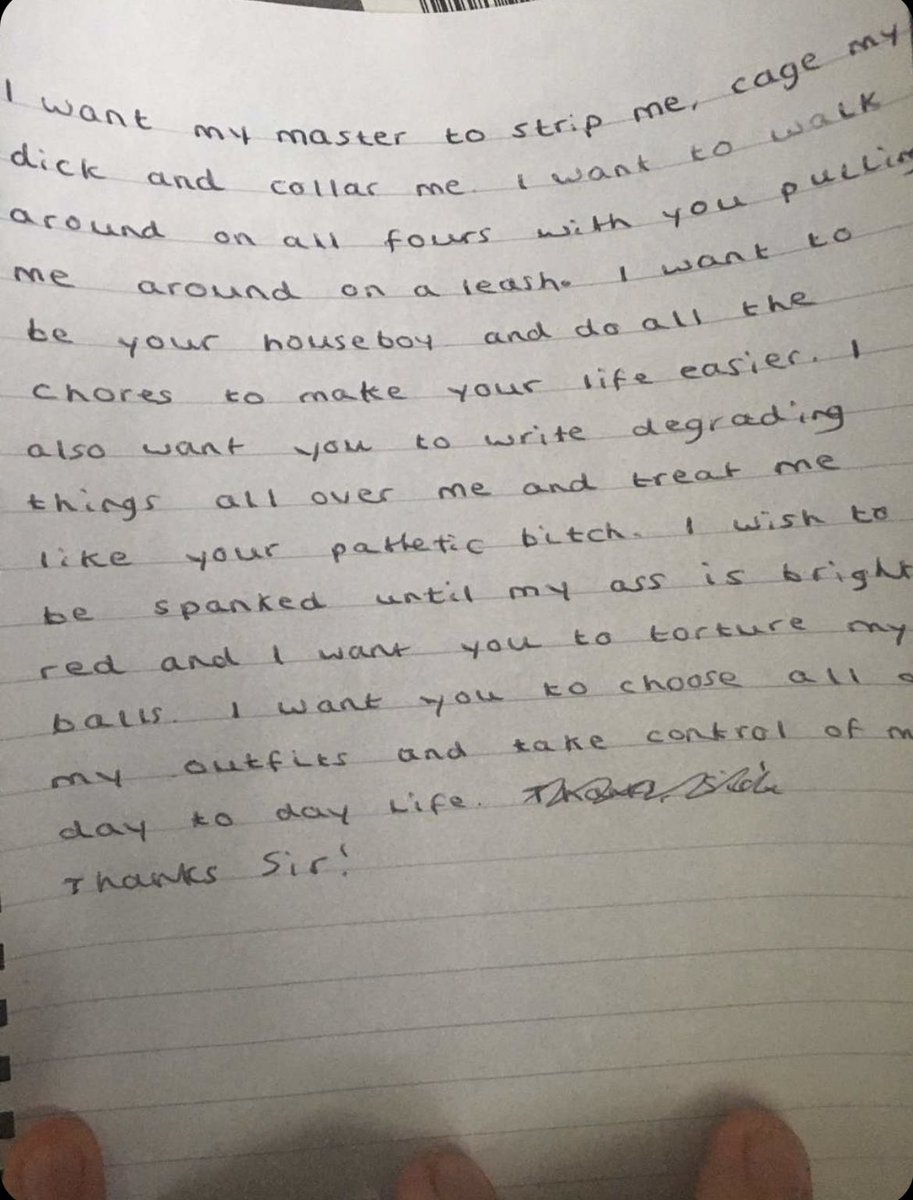 I want my master to strip me, cage my
dick and collar me. I want to walk
around on all fours with you pullin
me around on a leash. I want to
be your houseboy and do all the
chores to make your life easier. I
also want you to write degrading
things all over me and treat me
like your pathetic bitch. I wish to
be spanked until my ass is bright
red and I want you to torture my
balls. I want you to choose all o
my outfits and take control of m
day to day life.
Thanks Sir!